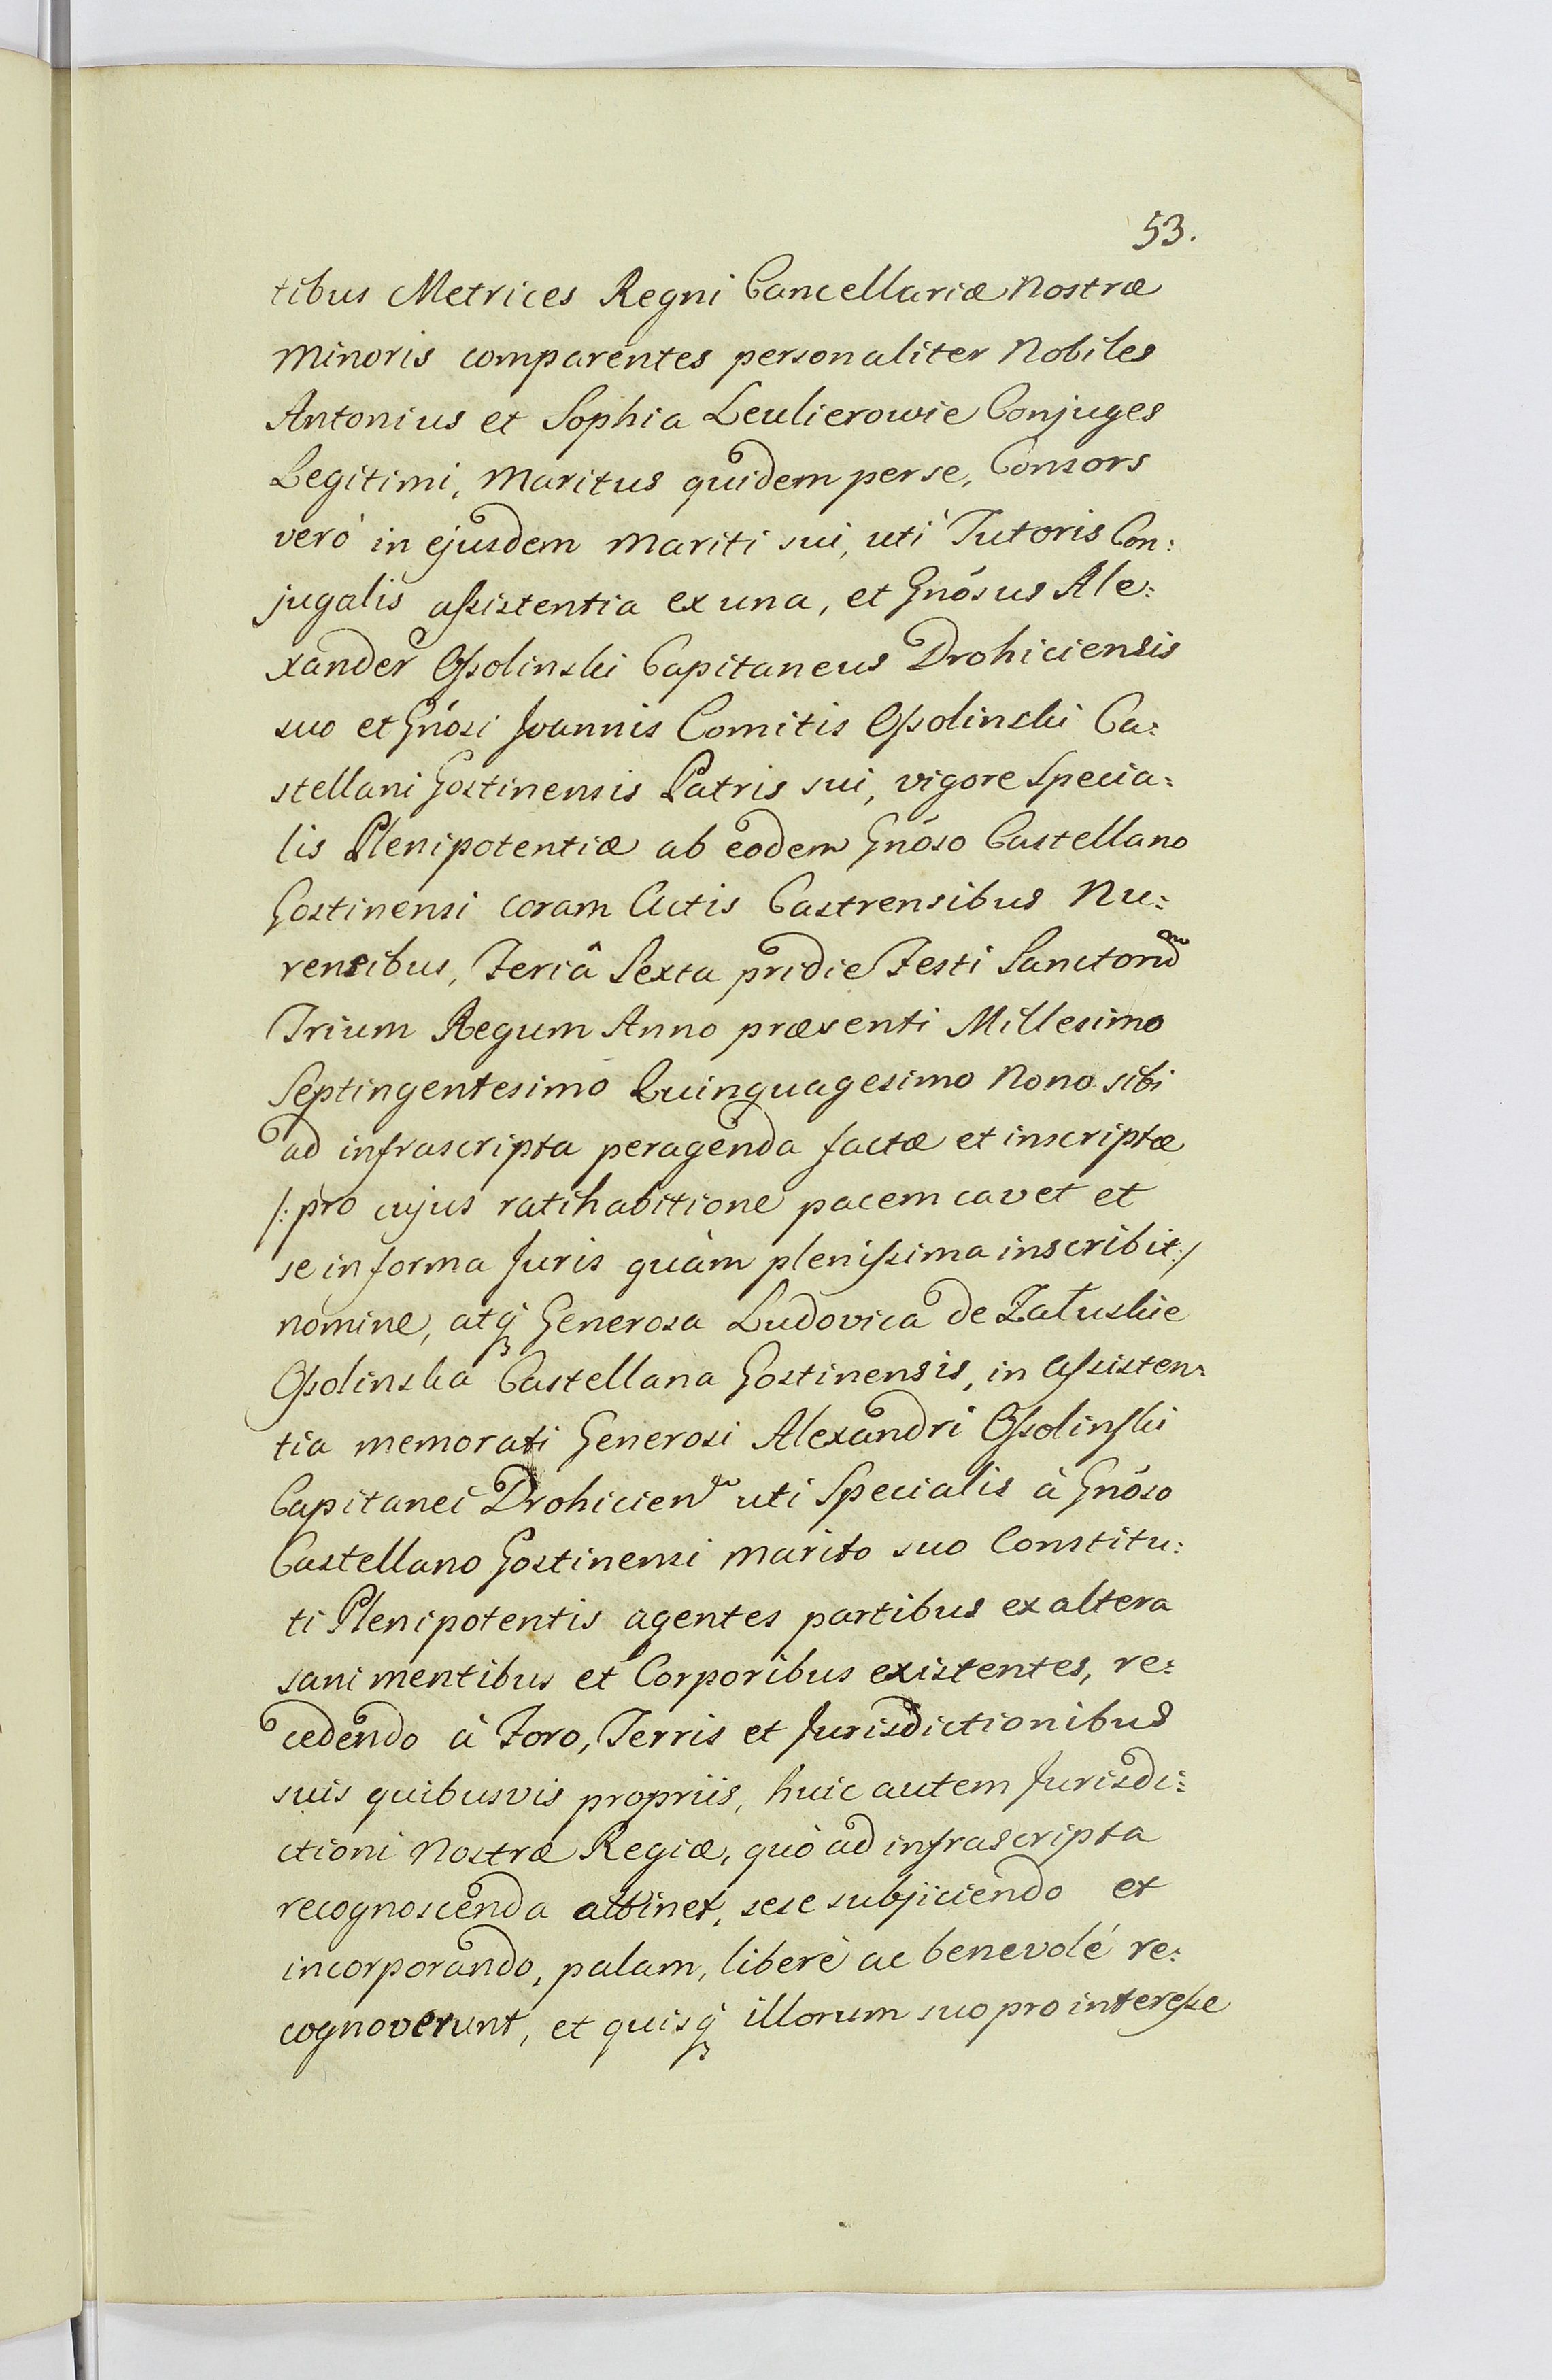 53.
tibus Metrices Regni Cancellariæ Nostræ
Minoris comparentes personaliter Nobiles
Antonius et Sophia Leulierowie Conjuges
Legitimi, Maritus quidem per se, Consors
verò in ejusdem Mariti sui, uti Tutoris Con:
jugalis assistentia ex una, et Gnosus Ale:
xander Ossolinski Capitaneus Drohiciensis
suo et Gnosi Joannis Comitis Ossolinski Ca:
stellani Gostinensis Patris sui, vigore Specia:
lis Plenipotentiæ ab eodem Gnoso Castellano
Gostinensi coram Actis Castrensibus Nu:
rensibus, Feriâ Sexta pridie Festi Sanctorum
Trium Regum Anno præsenti Millesimo
Septingentesimo Quinquagesimo Nono sibi
ad infrascripta peragenda factæ et inscriptæ
/: pro cujus ratihabitione pacem cavet et
se in forma Juris quàm plenissima inscribit :/
nomine, atq; Generosa Ludovica de Załuskie
Ossolinska Castellana Gostinensis, in Assisten:
tia memorati Generosi Alexandri Ossolinski
Capitanei Drohicien uti Specialis à Gnoso
Castellano Gostinensi Marito suo Constitu:
ti Plenipotentis agentes partibus ex altera
sani mentibus et Corporibus existentes, re:
cedendo à Foro, Terris et Jurisdictionibus
suis quibusvis propriis, huic autem Jurisdi:
ctioni Nostræ Regiæ, quò ad infrascripta
recognoscenda attinet, sese subjiciendo et
incorporando, palam, liberè ac benevolé re:
cognoverunt, et quisq; illorum suo pro interesse